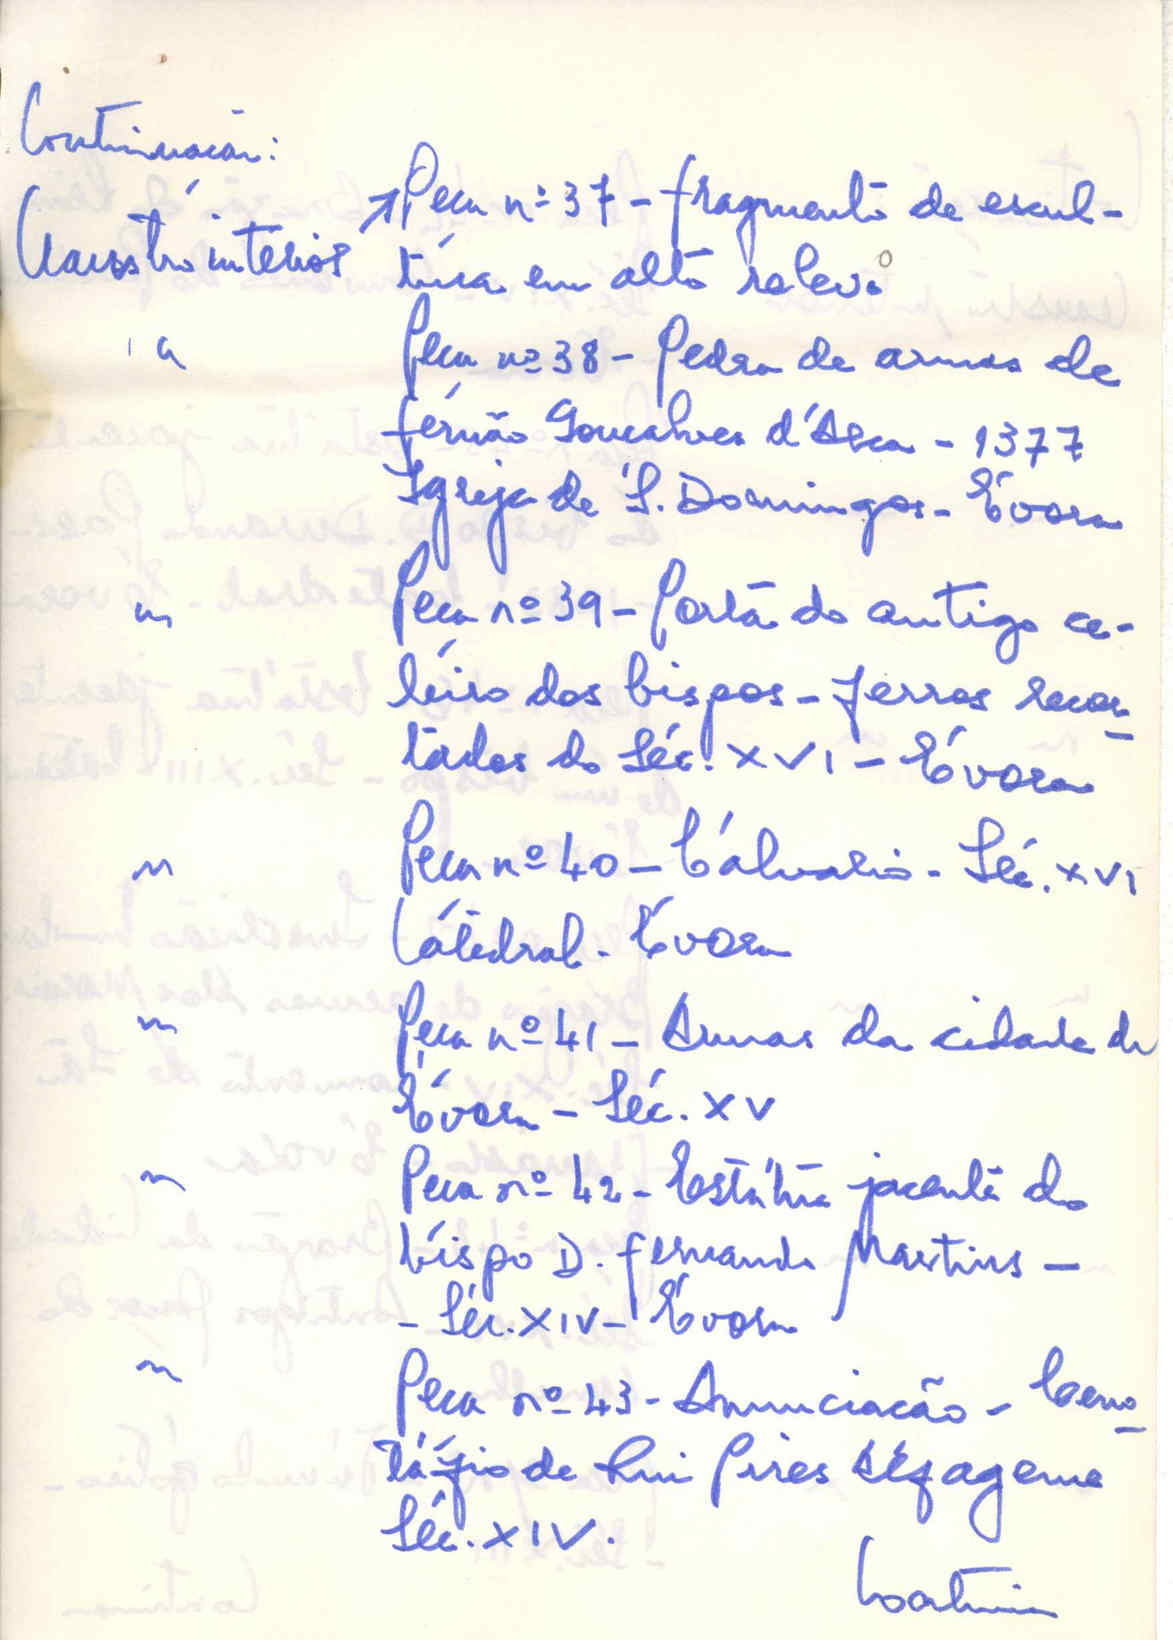 Continuação:
Claustro interior → Peça nº 37 - fragmento de escul-
tura em alto relevo
" Peça nº 38 - Pedra de armas de
Fernão Gonçalves d'Arca - 1377
Igreja de S. Domingos - Évora
" Peça nº 39 - Portão do antigo ce-
leiro dos bispos - ferros recor-
tados do Séc. XVI - Évora
" Peça nº 40 - Calvario - Séc. XVI
Catedral - Évora
" Peça nº 41 - Armas da cidade de
Évora - Séc. XV
" Peça nº 42 - Estátua jacente do
bispo D. Fernando Martins -
- Séc. XIV - Évora
" Peça nº 43 - Anunciação - Ceno-
táfio de Rui Pires
Séc. XIV.
Continua